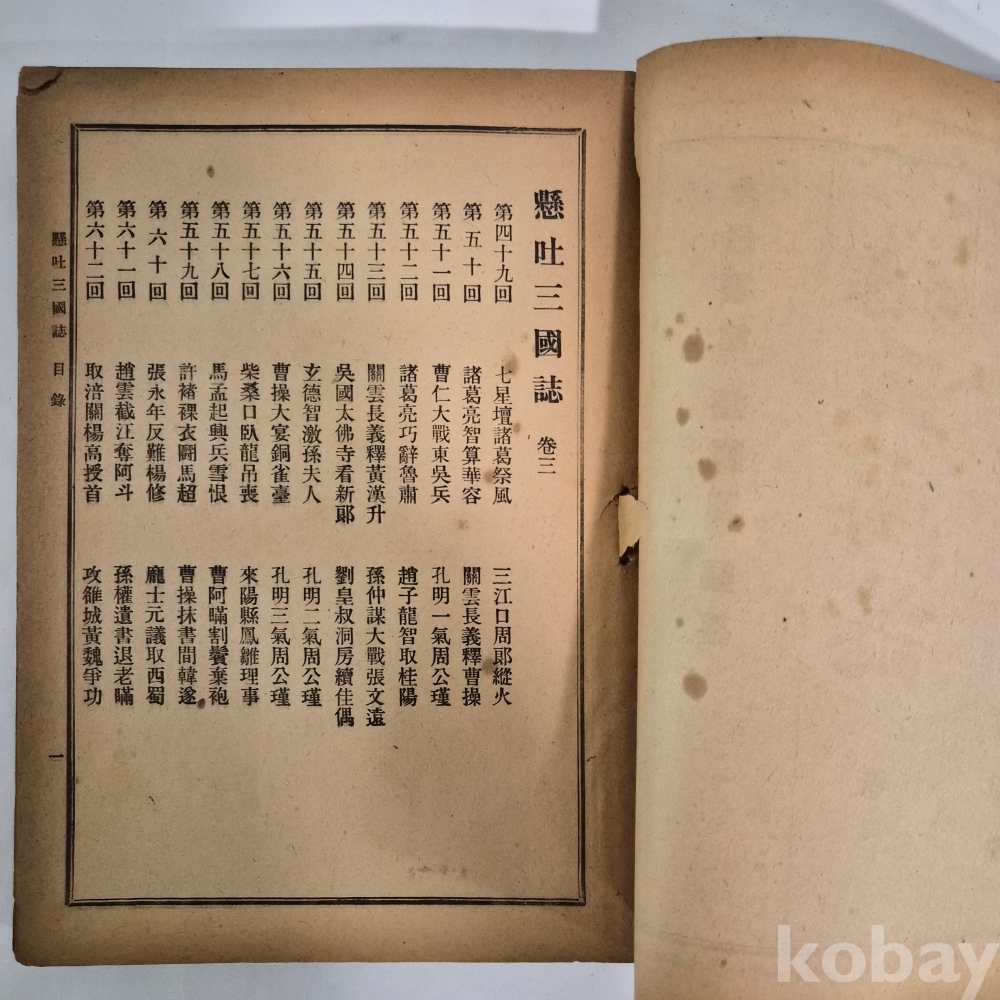 懸吐三國誌 卷三
第四十九回 七星壇諸葛祭風 三江口周郞縱火
第五十回 諸葛亮智算華容 關雲長義釋曹操
第五十一回 曹仁大戰東吳兵 孔明一氣周公瑾
第五十二回 諸葛亮巧辭魯肅 趙子龍智取桂陽
第五十三回 關雲長義釋黃漢升 孫仲謀大戰張文遠
第五十四回 吳國太佛寺看新郞 劉皇叔洞房續佳偶
第五十五回 玄德智激孫夫人 孔明二氣周公瑾
第五十六回 曹操大宴銅雀臺 孔明三氣周公瑾
第五十七回 柴桑口臥龍吊喪 來陽縣鳳雛理事
第五十八回 馬孟起興兵雪恨 曹阿瞞割鬚棄袍
第五十九回 許褚裸衣鬪馬超 曹操抹書間韓遂
第六十回 張永年反難楊修 龐士元議取西蜀
第六十一回 趙雲截江奪阿斗 孫權遺書退老瞞
第六十二回 取涪關楊高授首 攻雒城黃魏爭功
懸吐三國誌 目錄 一
kobay